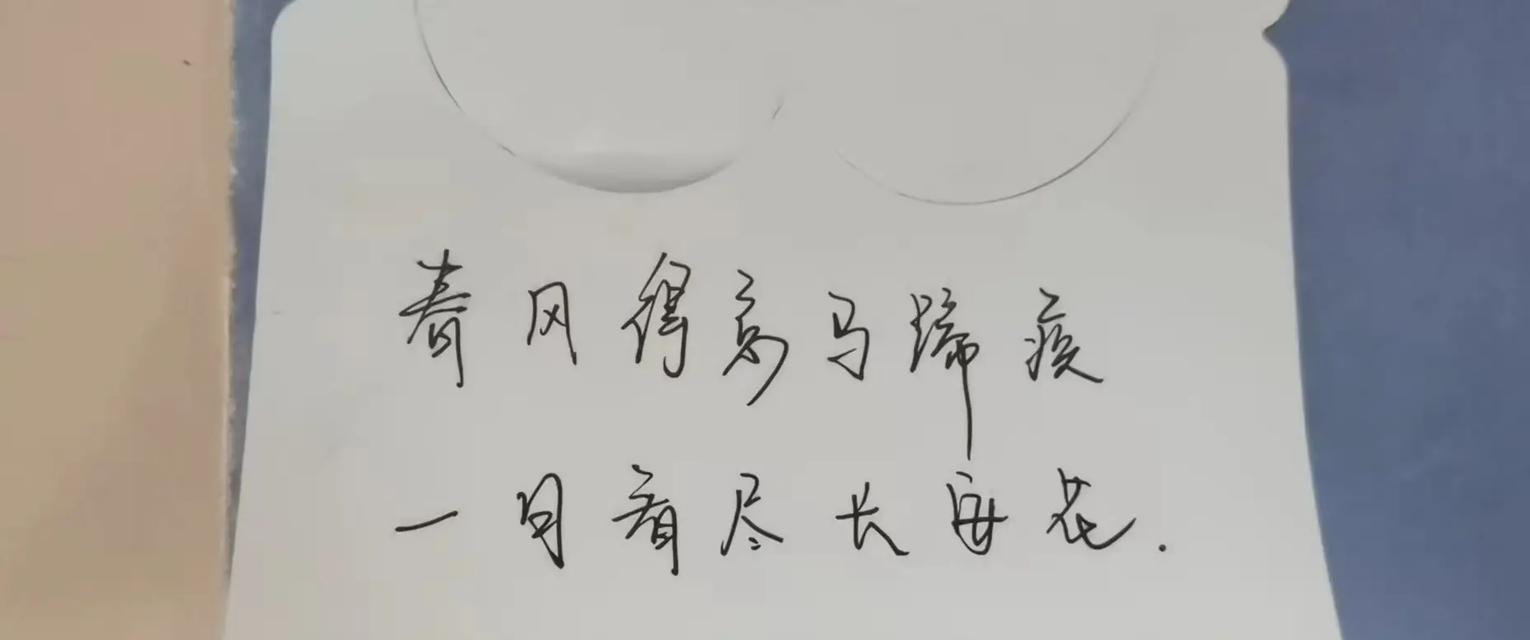 春风得意马蹄疾
一日看尽长安花.